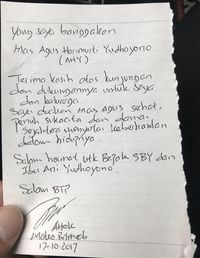 Yang saya banggakan
Mas Agus Harimurti Yudhoyono
(AHY)
Terima kasih atas kunjungan
dan dukungannya untuk saya
dan keluarga.
Saya doakan Mas Agus sehat,
penuh sukacita dan damai
sejahtera menyertai keberhasilan
dalam hidupnya.
Salam hormat utk Bapak SBY dan
Ibu Ani Yudhoyono.
Salam BTP
Ahok
Mako Brimob
17-10-2017